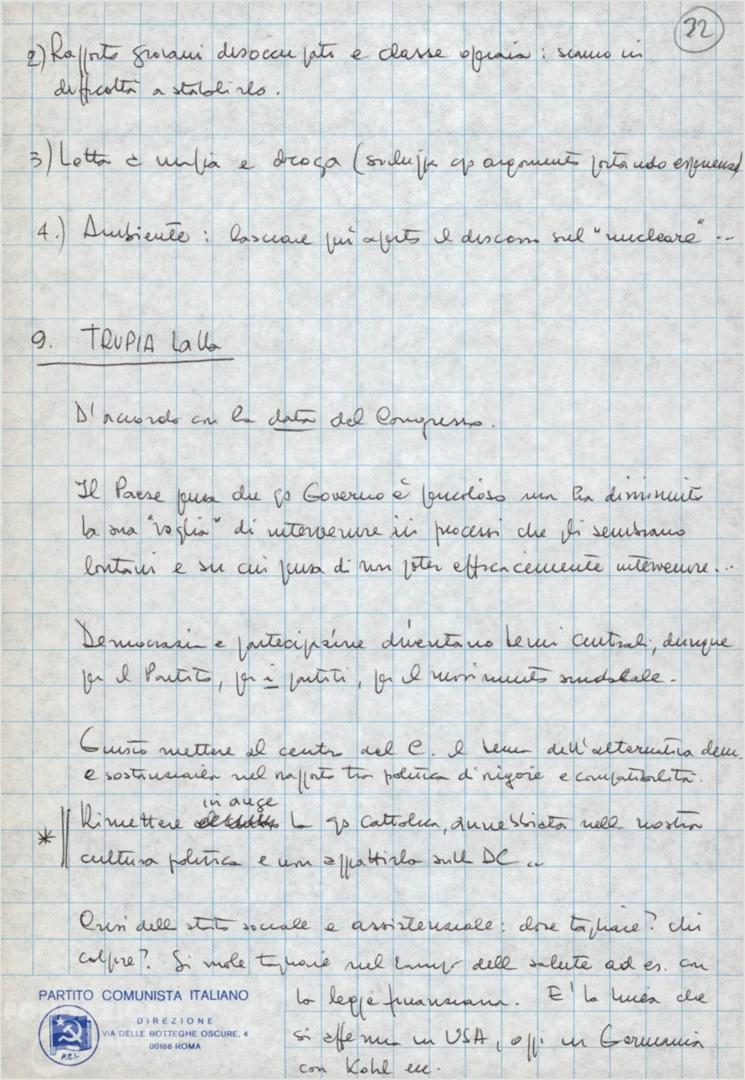 32
2) Rapporto giovani disoccupati e classe operaia: siamo in
difficoltà a stabilirlo.
3) Lotta a mafia e droga (sviluppa qs argomento portando esperienze)
4.) Ambiente: lasciare più aperto il discorso sul "nucleare" ..
9. TRUPIA Lalla
D'accordo con la data del Congresso.
Il Paese pensa che qs Governo è pericoloso ma ha diminuito
la sua "voglia" di intervenire in processi che gli sembrano
lontani e su cui pensa di non poter efficacemente intervenire...
Democrazia e partecipazione diventano temi centrali, dunque
per il Partito, per i partiti, per il movimento sindacale.
Giusto mettere al centro del C. il tema dell'alternativa dem.
e sostanziarla nel rapporto tra politica di rigore e compatibilità.
* Rimettere in auge la qs cattolica, annebbiata nella nostra
cultura politica e non appiattirla sulla DC ..
Crisi dello stato sociale e assistenziale: dove tagliare? chi
colpire? Si vuole tagliare nel campo della salute ad es. con
la legge finanziaria. E' la linea che
si afferma in USA, oggi in Germania
con Kohl ecc.
PARTITO COMUNISTA ITALIANO
DIREZIONE
VIA DELLE BOTTEGHE OSCURE, 4
00186 ROMA
P.C.I.